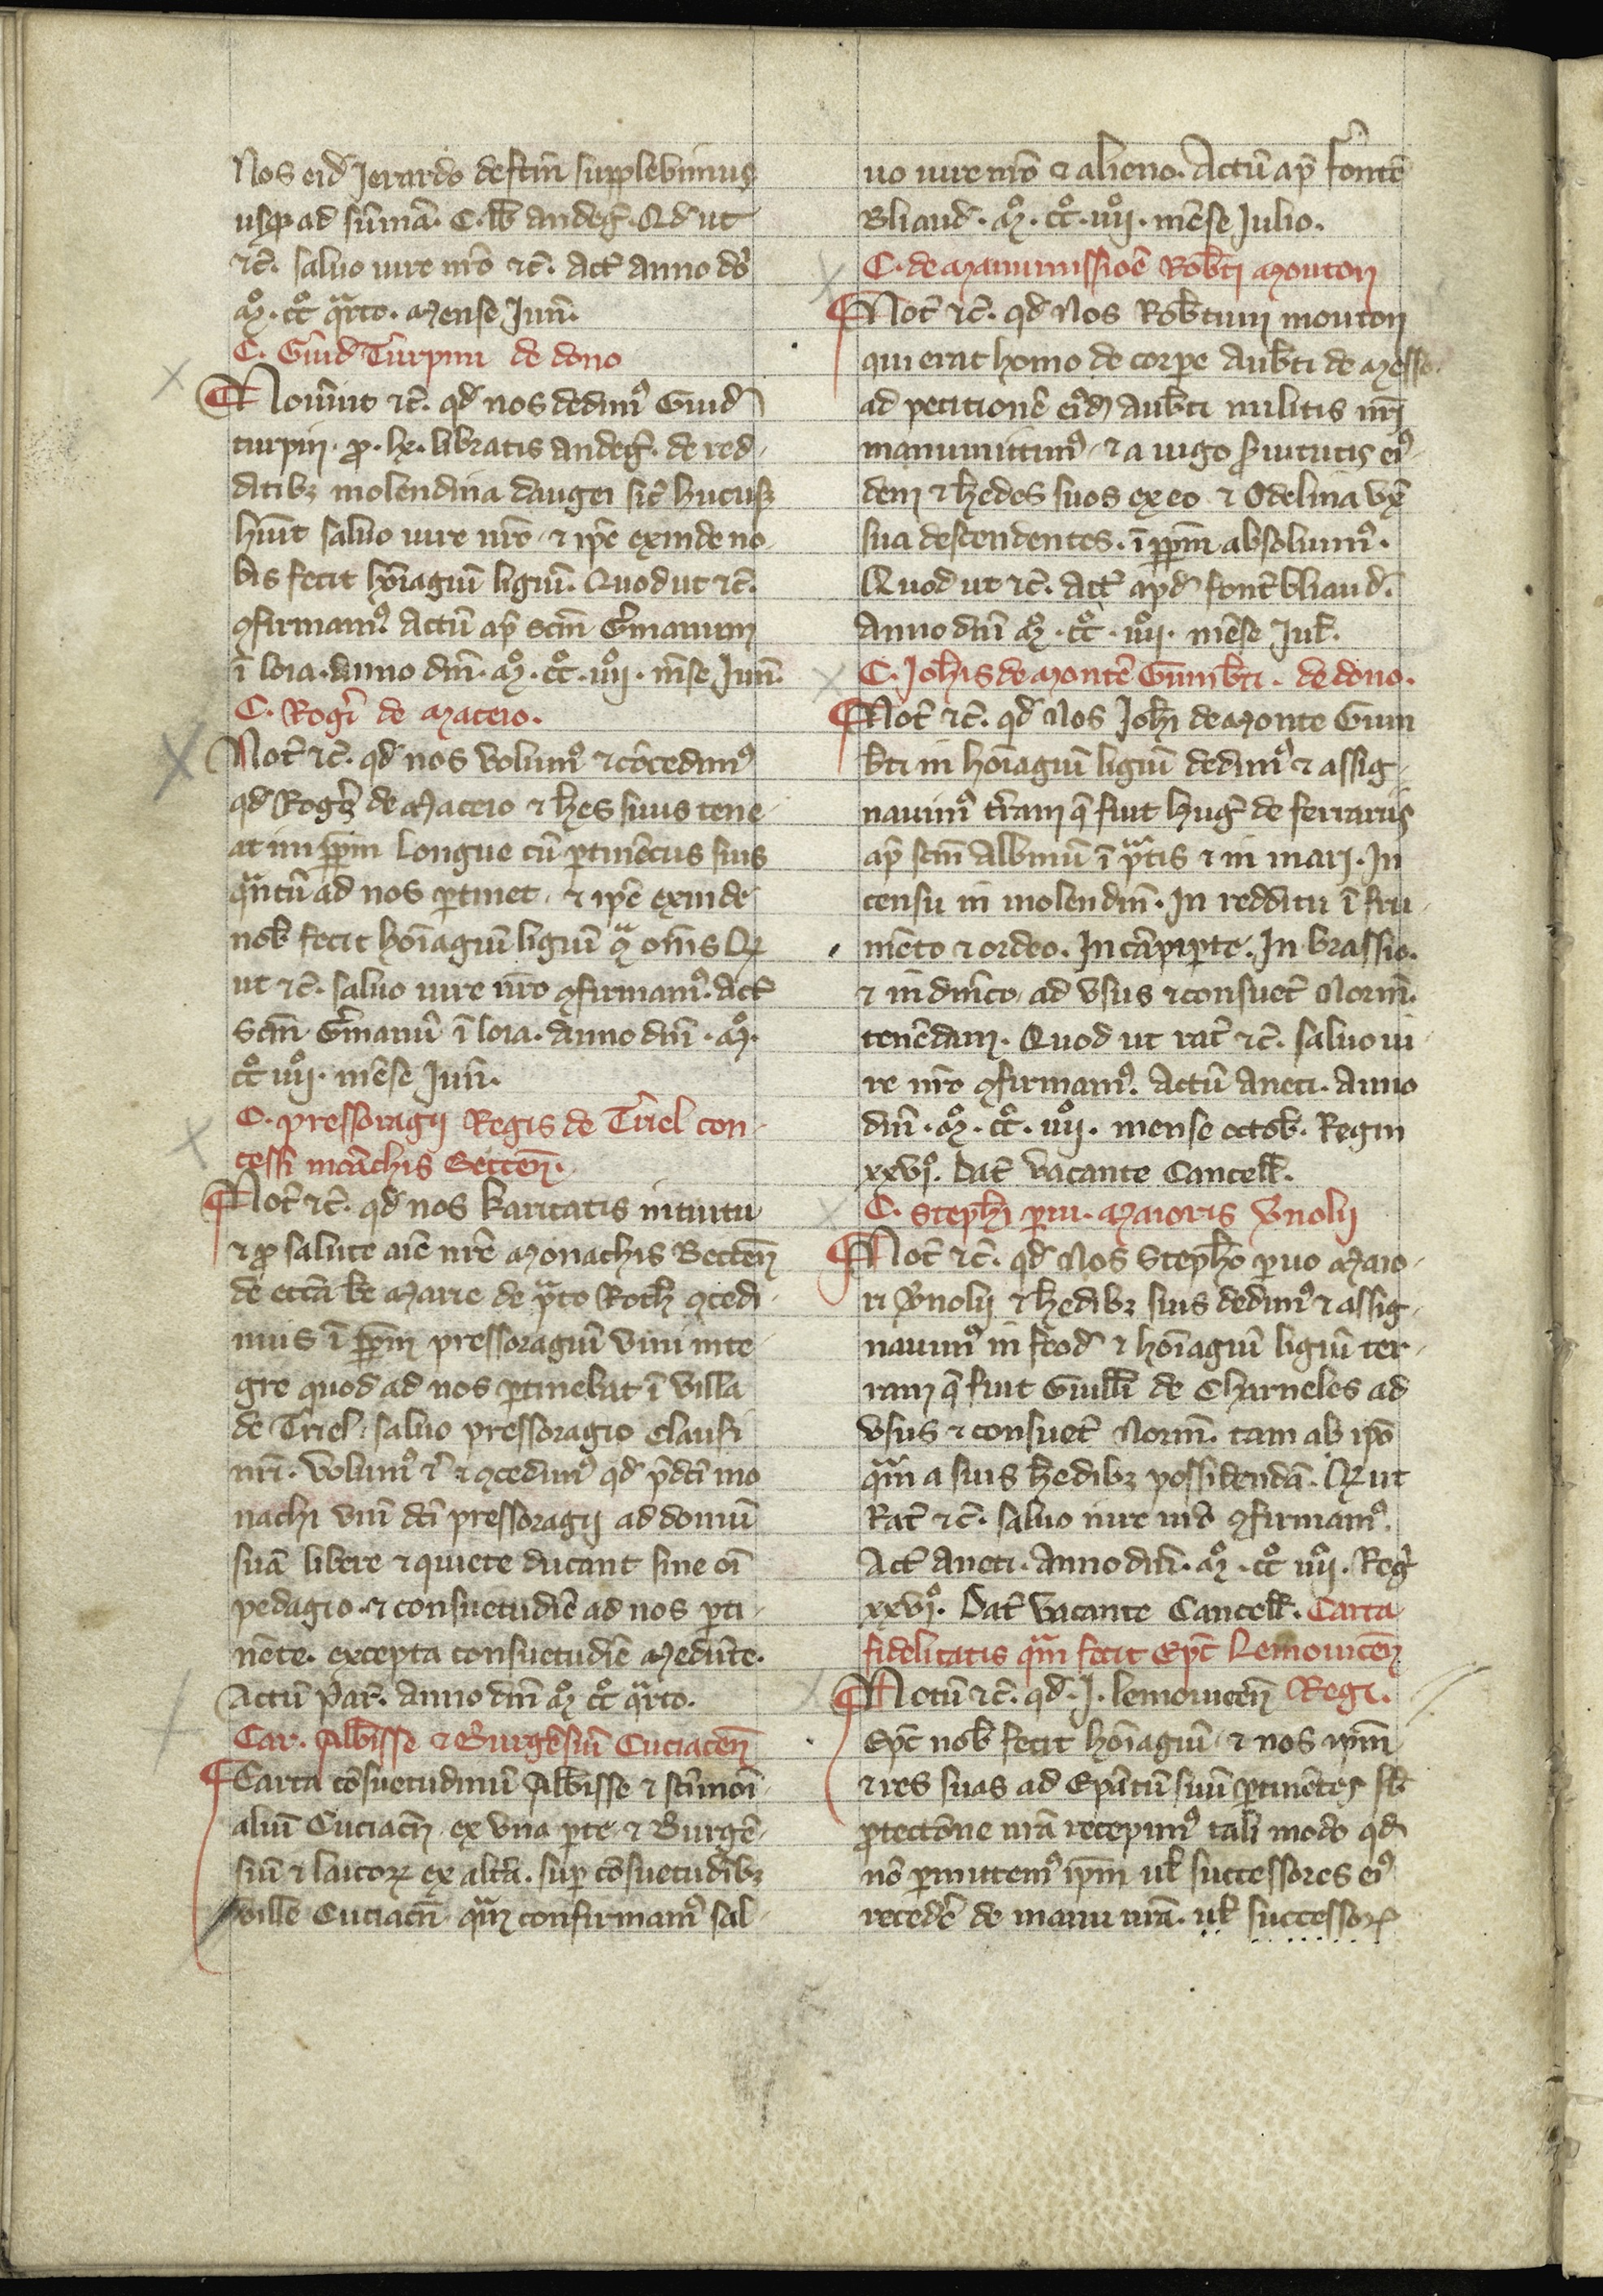 Nos eid̄ Jerardo defctm̄ supplebimus
usqꝫ ad sūmā. C. lib̄ andeḡ. Qd̄ ut
⁊c̄. saluo iure nr̄o ⁊c̄. act̄ anno dō
mͦ. ccͦ q̄rto. Mense Jun̄.
C. Guid̄ Turpini de dono
Nouīnt ⁊c̄. qd̄ nos dedimꝰ Guid̄
turpin. ꝓ. lx. libratis andeḡ. de red
ditibꝫ molendina daugei sic̄ hucusqꝫ
hūit saluo iure nr̄o. ⁊ ip̄e exinde no
bis fecit hōiagiū ligiū. Quod ut ⁊c̄.
ꝯfirmamꝰ. Actū ap̄ Scm̄ Ḡmanum
ī loia. anno dn̄i. mͦ. ccͦ. iiijͦ. mēse Jun̄.
C. Roḡi de Maceio.
Not̄ ⁊c̄. qd̄ nos volumꝰ ⁊ cōcedimꝰ
qd̄ Roḡꝰ de Maceio ⁊ h̄es suus tene
at inꝑpm̄ Longue cū ꝑtinētiis suis
q̄ntū ad nos ꝑtinet. ⁊ ip̄e exinde
nob̄ fecit hōiagiū ligiū ꝯ̄ om̄s Qd̄
ut ⁊c̄. saluo iure nr̄o ꝯfirmamꝰ. Act̄
Scm̄ Ḡmanū ī loia. anno dn̄i. mͦ.
ccͦ iiijͦ. mēse Jun̄.
C. pressoragij Regis de Triel con
cessi mōchis Beccen̄.
Not̄ ⁊c̄. qd̄ nos karitatis intuitu
⁊ ꝓ salute aīe nr̄e Monachis Beccen̄
de ecc̄a be Marie de p̄to Roth̄ ꝯcedi
mus ī ꝑpm̄ pressoragiū vini inte
gre quod ad nos ꝑtinebat ī villa
de Triel. saluo pressoragio clausi
nr̄i. Volumꝰ ēt ⁊ ꝯcedimꝰ qd̄ p̄dc̄i mo
nachi vinū dc̄i pressoragij ad domū
suā libere ⁊ quiete ducant sine oī
pedagio ⁊ consuetudīe ad nos ꝑti
nēte. excepta consuetudīe Medūte.
Actū Par̄. anno dn̄i mͦ ccͦ q̄rto.
Car. Abb̄isse ⁊ Burgēsiū Cuciacen̄
Carta cōsuetudinū Abb̄isse ⁊ sc̄imoī
aliū Cuciacen̄. ex una ꝑte ⁊ Burgē
siū ⁊ laicoꝝ ex alt̄a. suꝑ cōsuetudībꝫ
ville Cuciacen̄ q̄m confirmamꝰ sal
uo iure nr̄o ⁊ alieno. Actū ap̄ Fontē
Bliaud̄. mͦ. ccͦ. iiijͦ. mēse Julio.
C. de Manumissioē Rob̄ti Mouton
Not̄ ⁊c̄. qd̄ Nos Rob̄tum mouton
qui erat homo de corꝑe Aub̄ti de Messo.
ad petitionē eid̄ Aub̄ti militis nr̄i
manumittimꝰ. ⁊ a iugo s̄uitutis eiꝰ
dem ⁊ h̄edes suos ex eo ⁊ Odelina vx̄e
sua descendentes. ī ꝑpm̄ absoluimꝰ.
Quod ut ⁊c̄. act̄ apd̄ Font̄bliaud̄.
Anno dn̄i mͦ. ccͦ. iiijͦ. mēse Jul̄.
C. Joh̄is de Montē Gumb̄ti. de dono.
Not̄ ⁊c̄. qd̄ Nos Joh̄i de Monte Gum
b̄ti in hōiagiū ligiū dedimꝰ ⁊ assig
nauimꝰ t̄ram q̄ fuit huḡ de ferrariis
ap̄ scm̄ Albinū ī p̄tis ⁊ in mari. In
censu in molendin̄. In redditu ī fru
mēto ⁊ ordeo. In cāpiꝑte. In brassio.
⁊ in dn̄ico ad vsus ⁊ consuet̄ Norm̄.
tenēdam. Quod ut rat̄ ⁊c̄. saluo iu
re nr̄o ꝯfirmamꝰ. Actū aneti. anno
dn̄i. mͦ. ccͦ. iiijͦ. mense octob̄. Regni
xxvjͦ. Dat̄ vacante Cancell̄.
C. Steph̄i ꝑui. Maioris Vnolij
Not̄ ⁊c̄. qd̄ Nos Steph̄o ꝑuo Maio
ri Vnolij ⁊ h̄edibꝫ suis dedimꝰ ⁊ assig
nauimꝰ in feod̄ ⁊ hōiagiū ligiū ter
ram q̄ fuit Guill̄i de Charneles ad
vsus ⁊ consuet̄ Norm̄. tam ab ip̄o
q̄m a suis h̄edibꝫ possidendā. Qd̄ ut
Rat̄ ⁊c̄. saluo iure nr̄o ꝯfirmamꝰ.
Act̄ aneti. Anno dn̄i. mͦ. ccͦ iiijͦ. Reḡ
xxvjͦ. Dat̄ vacante Cancell̄. Carta
fidelitatis q̄m fecit Ep̄c Lemouicen̄
Notū ⁊c̄. qd̄. J. lemouicen̄ Regi.
Ep̄c nob̄ fecit hōiagiū. ⁊ nos ip̄m
⁊ res suas ad Ep̄atū suū ꝑtinētes sb̄
ꝓtectōne nr̄a recepimꝰ tali modo qd̄
nō ꝑmittemꝰ ip̄m ul̄ successores eiꝰ
recedē de manu nr̄a. ul̄ successoꝝ